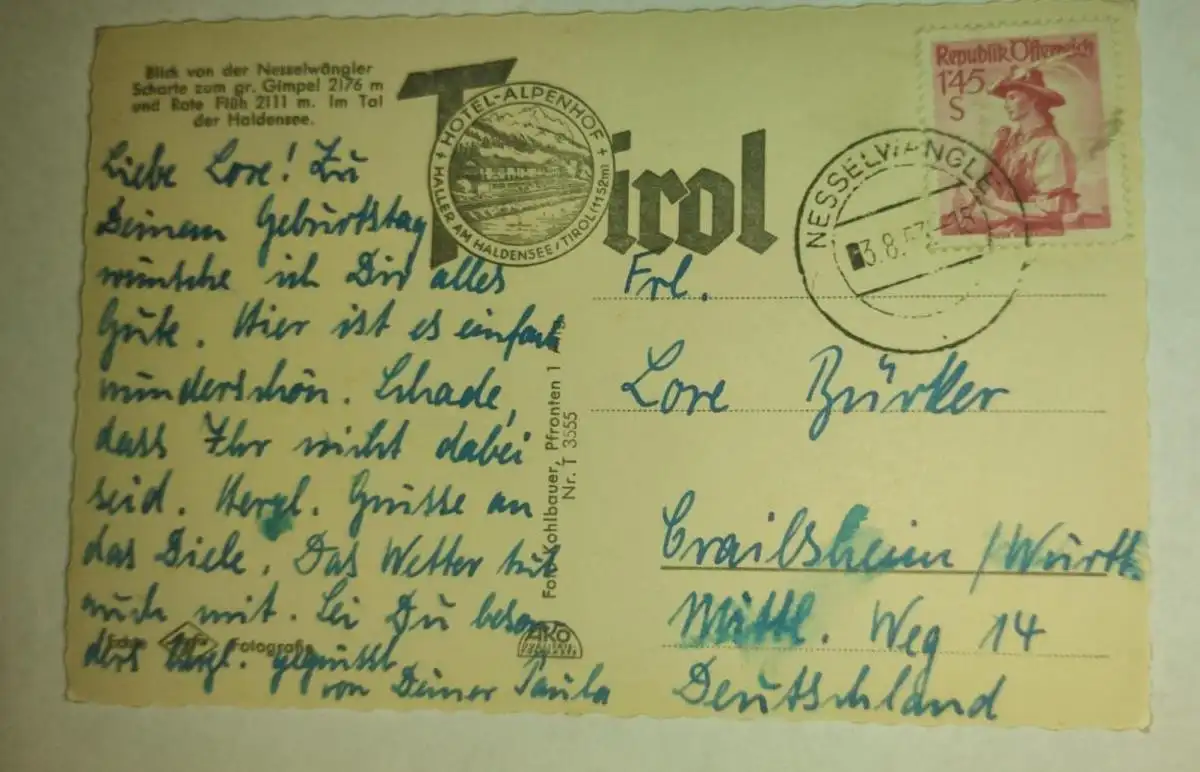 Blick von der Nesselwängler
Scharte zum gr. Gimpel 2176 m
und Rote Flüh 2111 m. Im Tal
der Haldensee.
Tirol
HOTEL-ALPENHOF
HALLER AM HALDENSEE/TIROL (1152m)
Republik Österreich
1'45
S
NESSELWÄNGLE
3.8.
Liebe Lore! Zu
Deinem Geburtstag
wünsche ich Dir alles
Gute. Hier ist es einfach
wunderschön. Schade,
dass Ihr nicht dabei
seid. Hergl. Grüsse an
das Diele. Das Wetter tut
auch mit. Sei Du beson
ders hergl. gegrüsst
von Deiner Paula
Echte Fotografie
Kohlbauer, Pfronten 1
Nr. T 3555
Frl.
Lore Bürker
Crailsheim /Württ.
Mittl. Weg 14
Deutschland